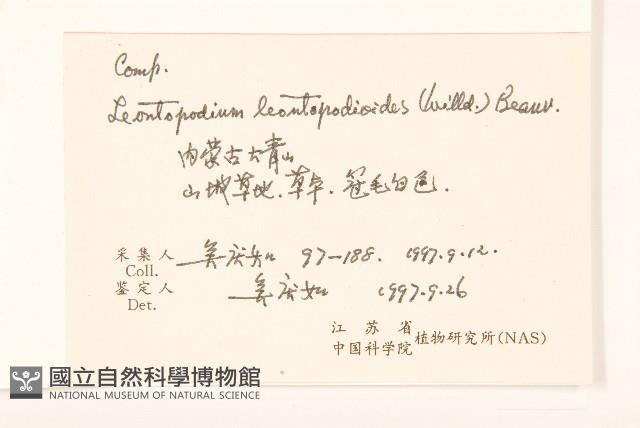 Comp.
Leontopodium leontopodioides (Willd.) Beauv.
内蒙古大青山
山坡草地.草本.冠毛白色.
采集人 姜庆如 97-188. 1997.9.12.
Coll.
鉴定人 姜庆如 1997.9.26
Det.
江苏省
中国科学院 植物研究所(NAS)
國立自然科學博物館
NATIONAL MUSEUM OF NATURAL SCIENCE